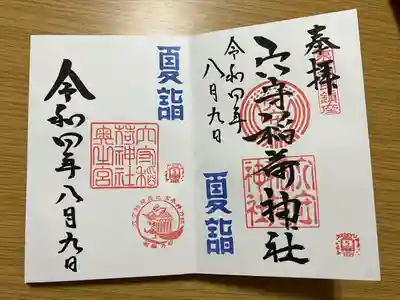 奉拝
穴守稲荷神社
令和四年
八月九日
夏詣
穴守
神社
夏詣
穴守稲
荷神社
奥之宮
令和四年八月九日